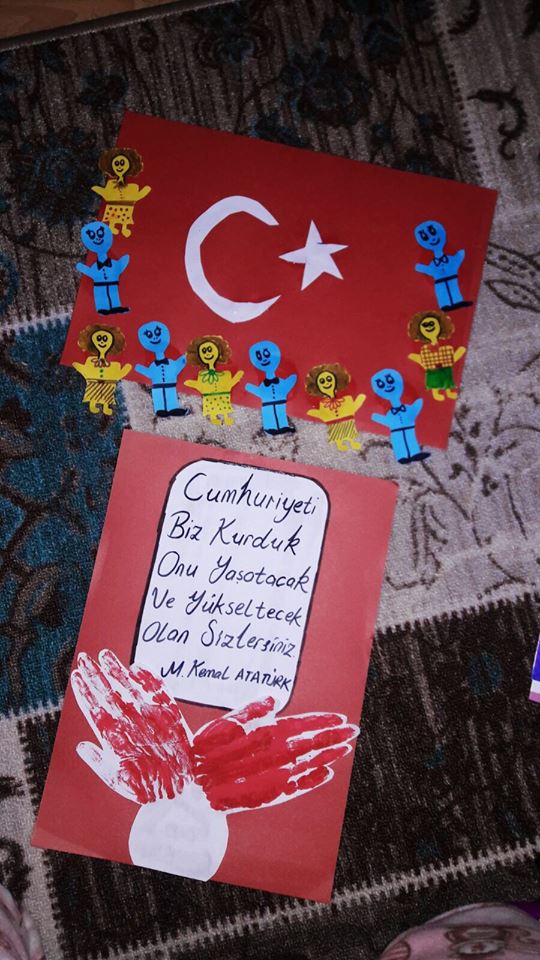 Cumhuriyeti
Biz Kurduk
Onu Yaşatacak
Ve Yükseltecek
Olan Sizlersiniz
M. Kemal ATATÜRK